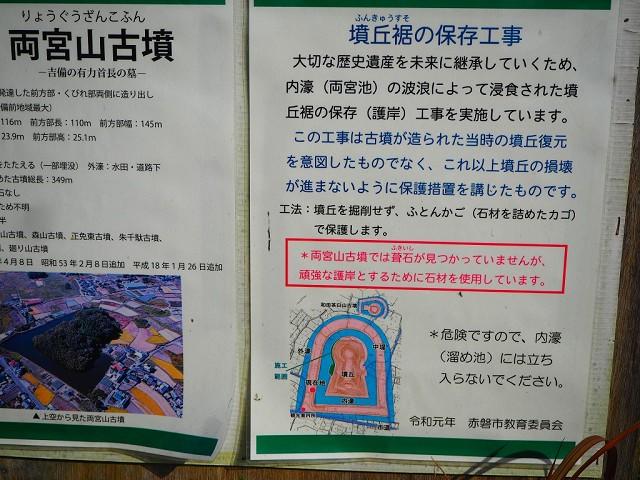 りょうぐうざんこふん
両宮山古墳
－吉備の有力首長の墓－
発達した前方部・くびれ部両側に造り出し
備前地域最大）
116m 前方部長：110m 前方部幅：145m
23.9m 前方部高：25.1m
をたたえる（一部埋没） 外濠：水田・道路下
めた古墳総長：349m
石なし
ため不明
半
山古墳、森山古墳、正免東古墳、朱千駄古墳、
、廻り山古墳
年4月8日 昭和53年2月8日追加 平成18年1月26日追加
▲上空から見た両宮山古墳
ふんきゅうすそ
墳丘裾の保存工事
大切な歴史遺産を未来に継承していくため、
内濠（両宮池）の波浪によって浸食された墳
丘裾の保存（護岸）工事を実施しています。
この工事は古墳が造られた当時の墳丘復元
を意図したものでなく、これ以上墳丘の損壊
が進まないように保護措置を講じたものです。
工法：墳丘を掘削せず、ふとんかご（石材を詰めたカゴ）
で保護します。
ふきいし
＊両宮山古墳では葺石が見つかっていませんが、
頑強な護岸とするために石材を使用しています。
和田茶臼山古墳
外濠
中堤
施工
範囲
墳丘
現在地
内濠
市道
＊危険ですので、内濠
（溜め池）には立ち
入らないでください。
令和元年 赤磐市教育委員会